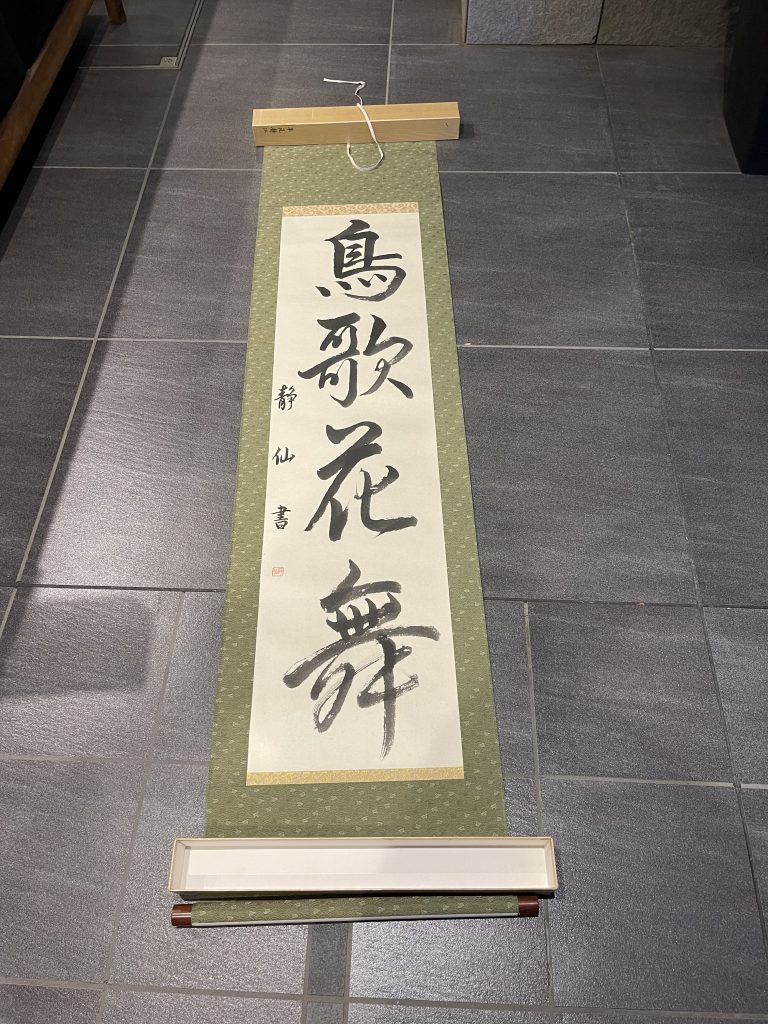 鳥歌花舞
静仙書